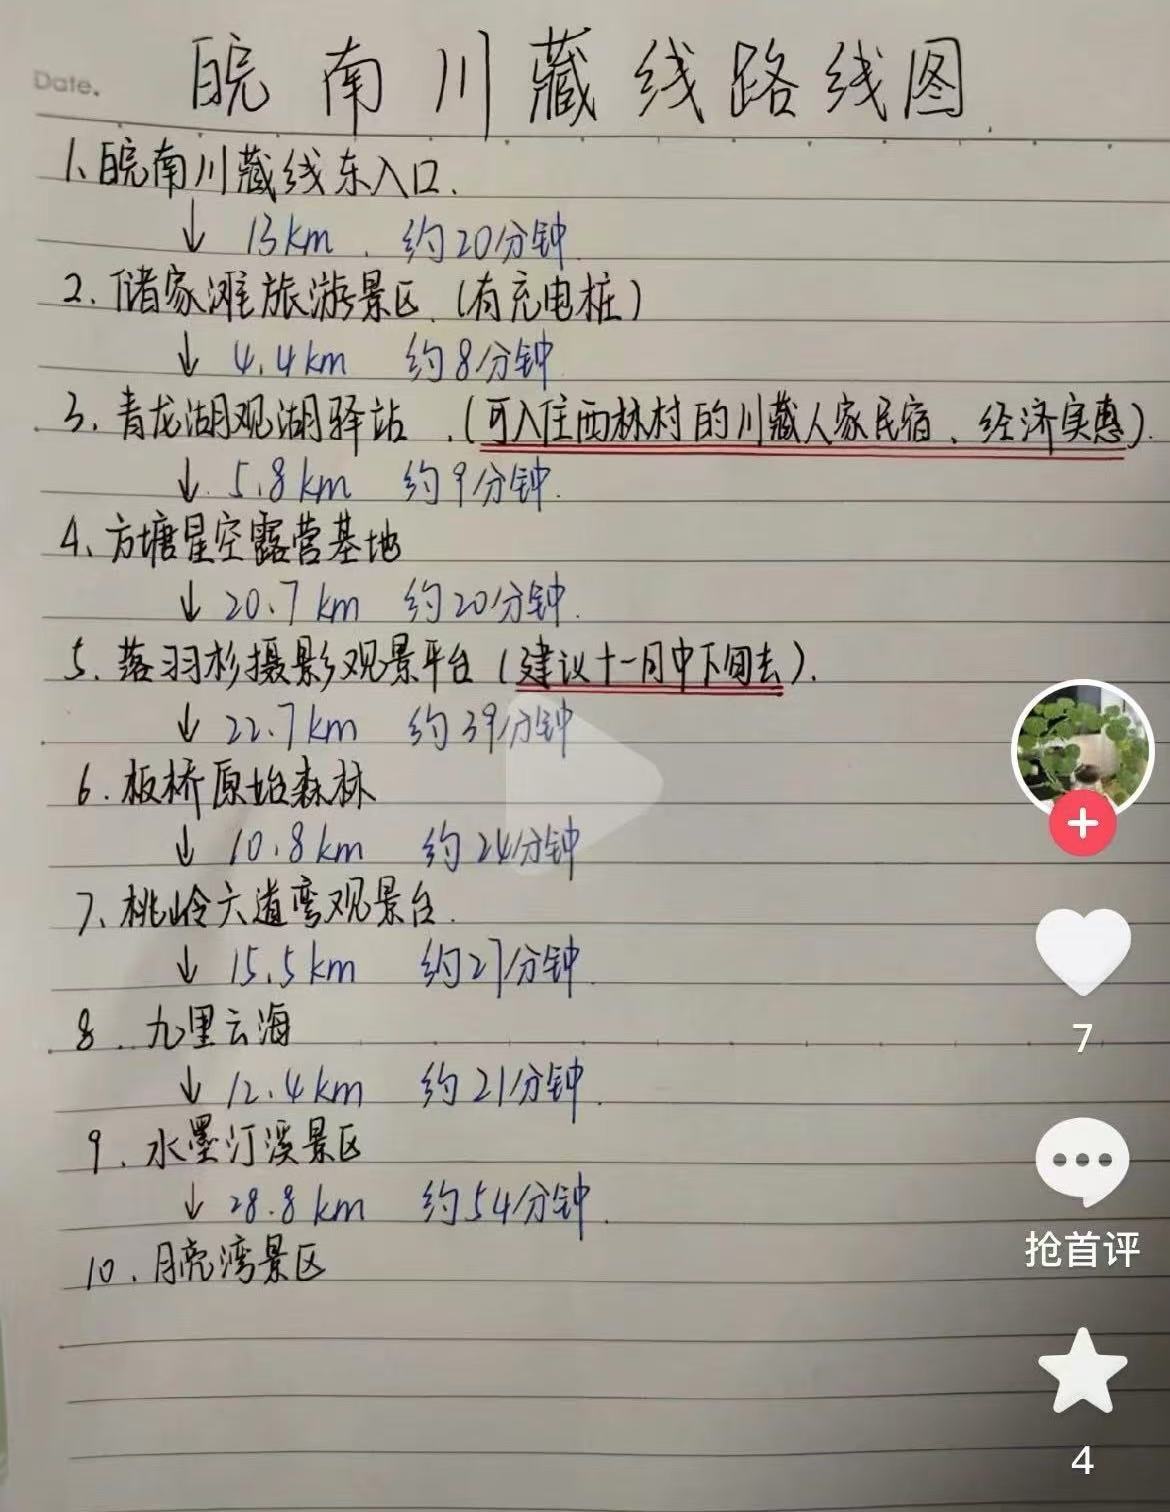 Date.
皖南川藏线路线图
1、皖南川藏线东入口.
↓ 13km . 约20分钟.
2、储家滩旅游景区.(有充电桩)
↓ 4.4km 约8分钟.
3、青龙湖观湖驿站 .(可入住西林村的川藏人家民宿、经济实惠).
↓ 5.8km 约9分钟.
4、方塘星空露营基地
↓ 20.7km 约20分钟.
5、落羽杉摄影观景平台(建议十一月中下旬去).
↓ 22.7km 约39分钟
6.板桥原始森林
↓ 10.8km 约24分钟
7、桃岭六道弯观景台.
↓ 15.5km 约27分钟.
8.九里云海
↓ 12.4km 约21分钟.
9.水墨汀溪景区
↓ 28.8km 约54分钟.
10.月亮湾景区
7
抢首评
4